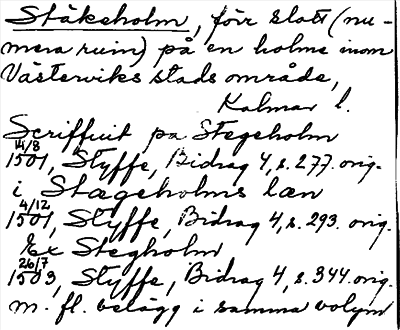 Ståkeholm, förr slott (nu-
mera ruin) på en holme inom
Västerviks stads område,
Kalmar l.
Scriffuit pa Stegeholm
14/8
1501, Styffe, Bidrag 4, s. 277. orig.
i Stægeholms læn
4/12
1501, Styffe, Bidrag 4, s. 293. orig.
Ex Stegholm
26/7
1503, Styffe, Bidrag 4, s. 344. orig.
m. fl. belägg i samma volym